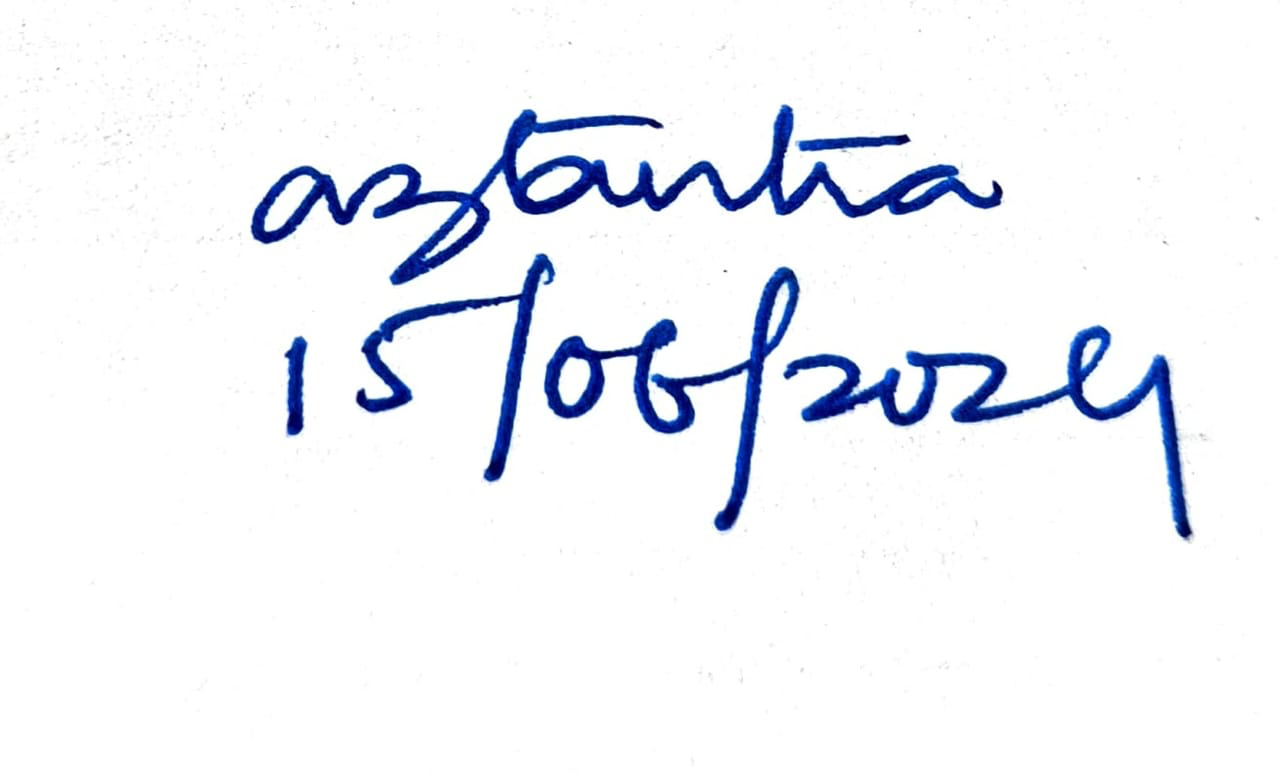 aztantia
15/06/2024